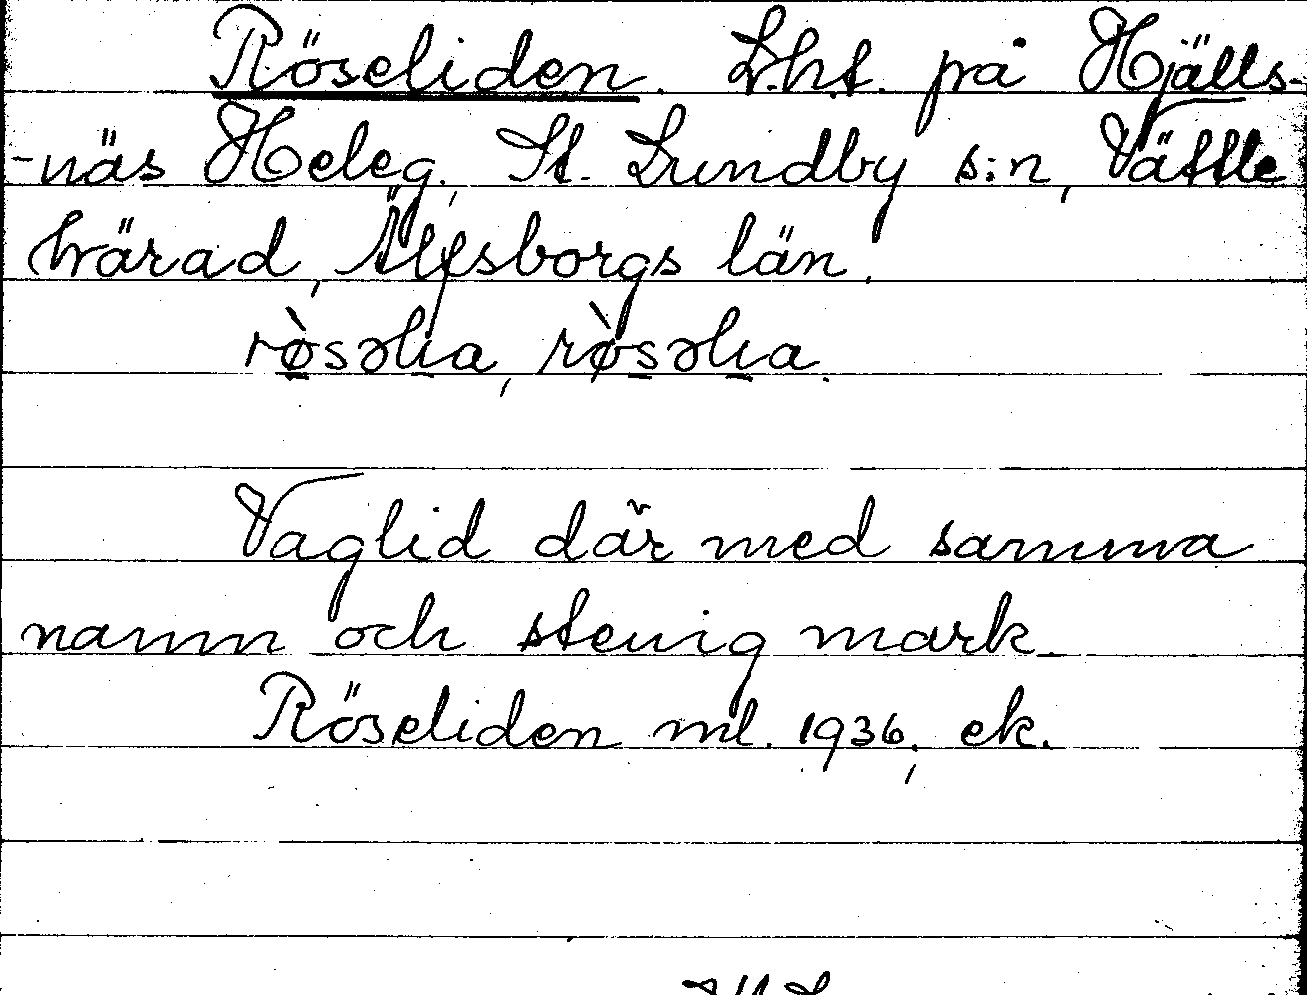 Röseliden. L.h.t. på Hjälls-
-näs Heleg., St. Lundby s:n, Vättle
härad, Älfsborgs län.
rø̀səlıa, rø̀səlıa.
Vaglid där med samma
namn och stenig mark.
Röseliden ml. 1936, ek.